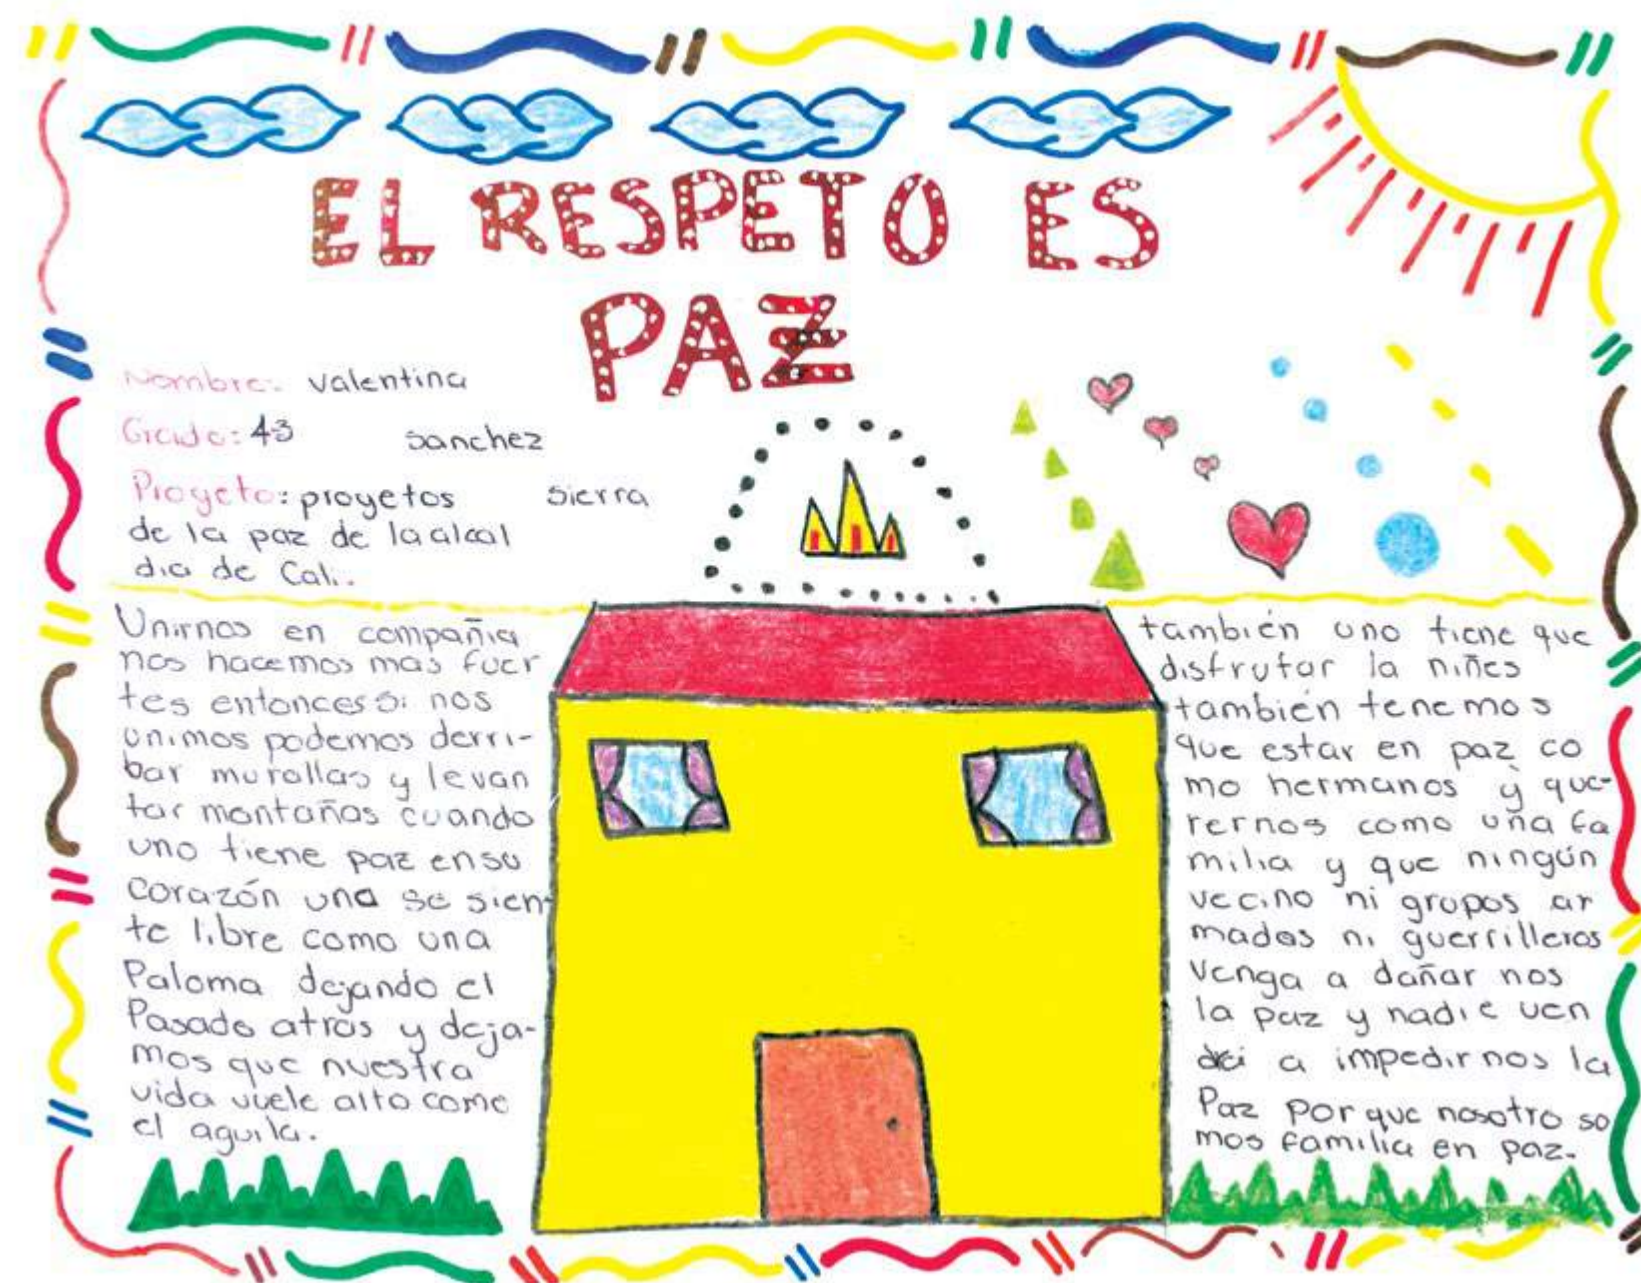 EL RESPETO ES
PAZ
Nombre: valentina
Grado: 43 sanchez
Proyeto: proyetos sierra
de la paz de la alcal
dia de Cali.
Unirnos en compañia
nos hacemos mas fuer
tes entonces si nos
unimos podemos derri-
bar murallas y levan
tar montañas cuando
uno tiene paz en su
corazón una se sien
te libre como una
Paloma dejando el
Pasado atras y deja-
mos que nuestra
vida vuele alto como
el aguila.
también uno tiene que
disfrutar la niñes
también tenemos
que estar en paz co
mo hermanos y que-
rernos como una fa
milia y que ningún
vecino ni grupos ar
mados ni guerrilleros
venga a dañar nos
la paz y nadie ven
drá a impedirnos la
Paz por que nosotro so
mos familia en paz.